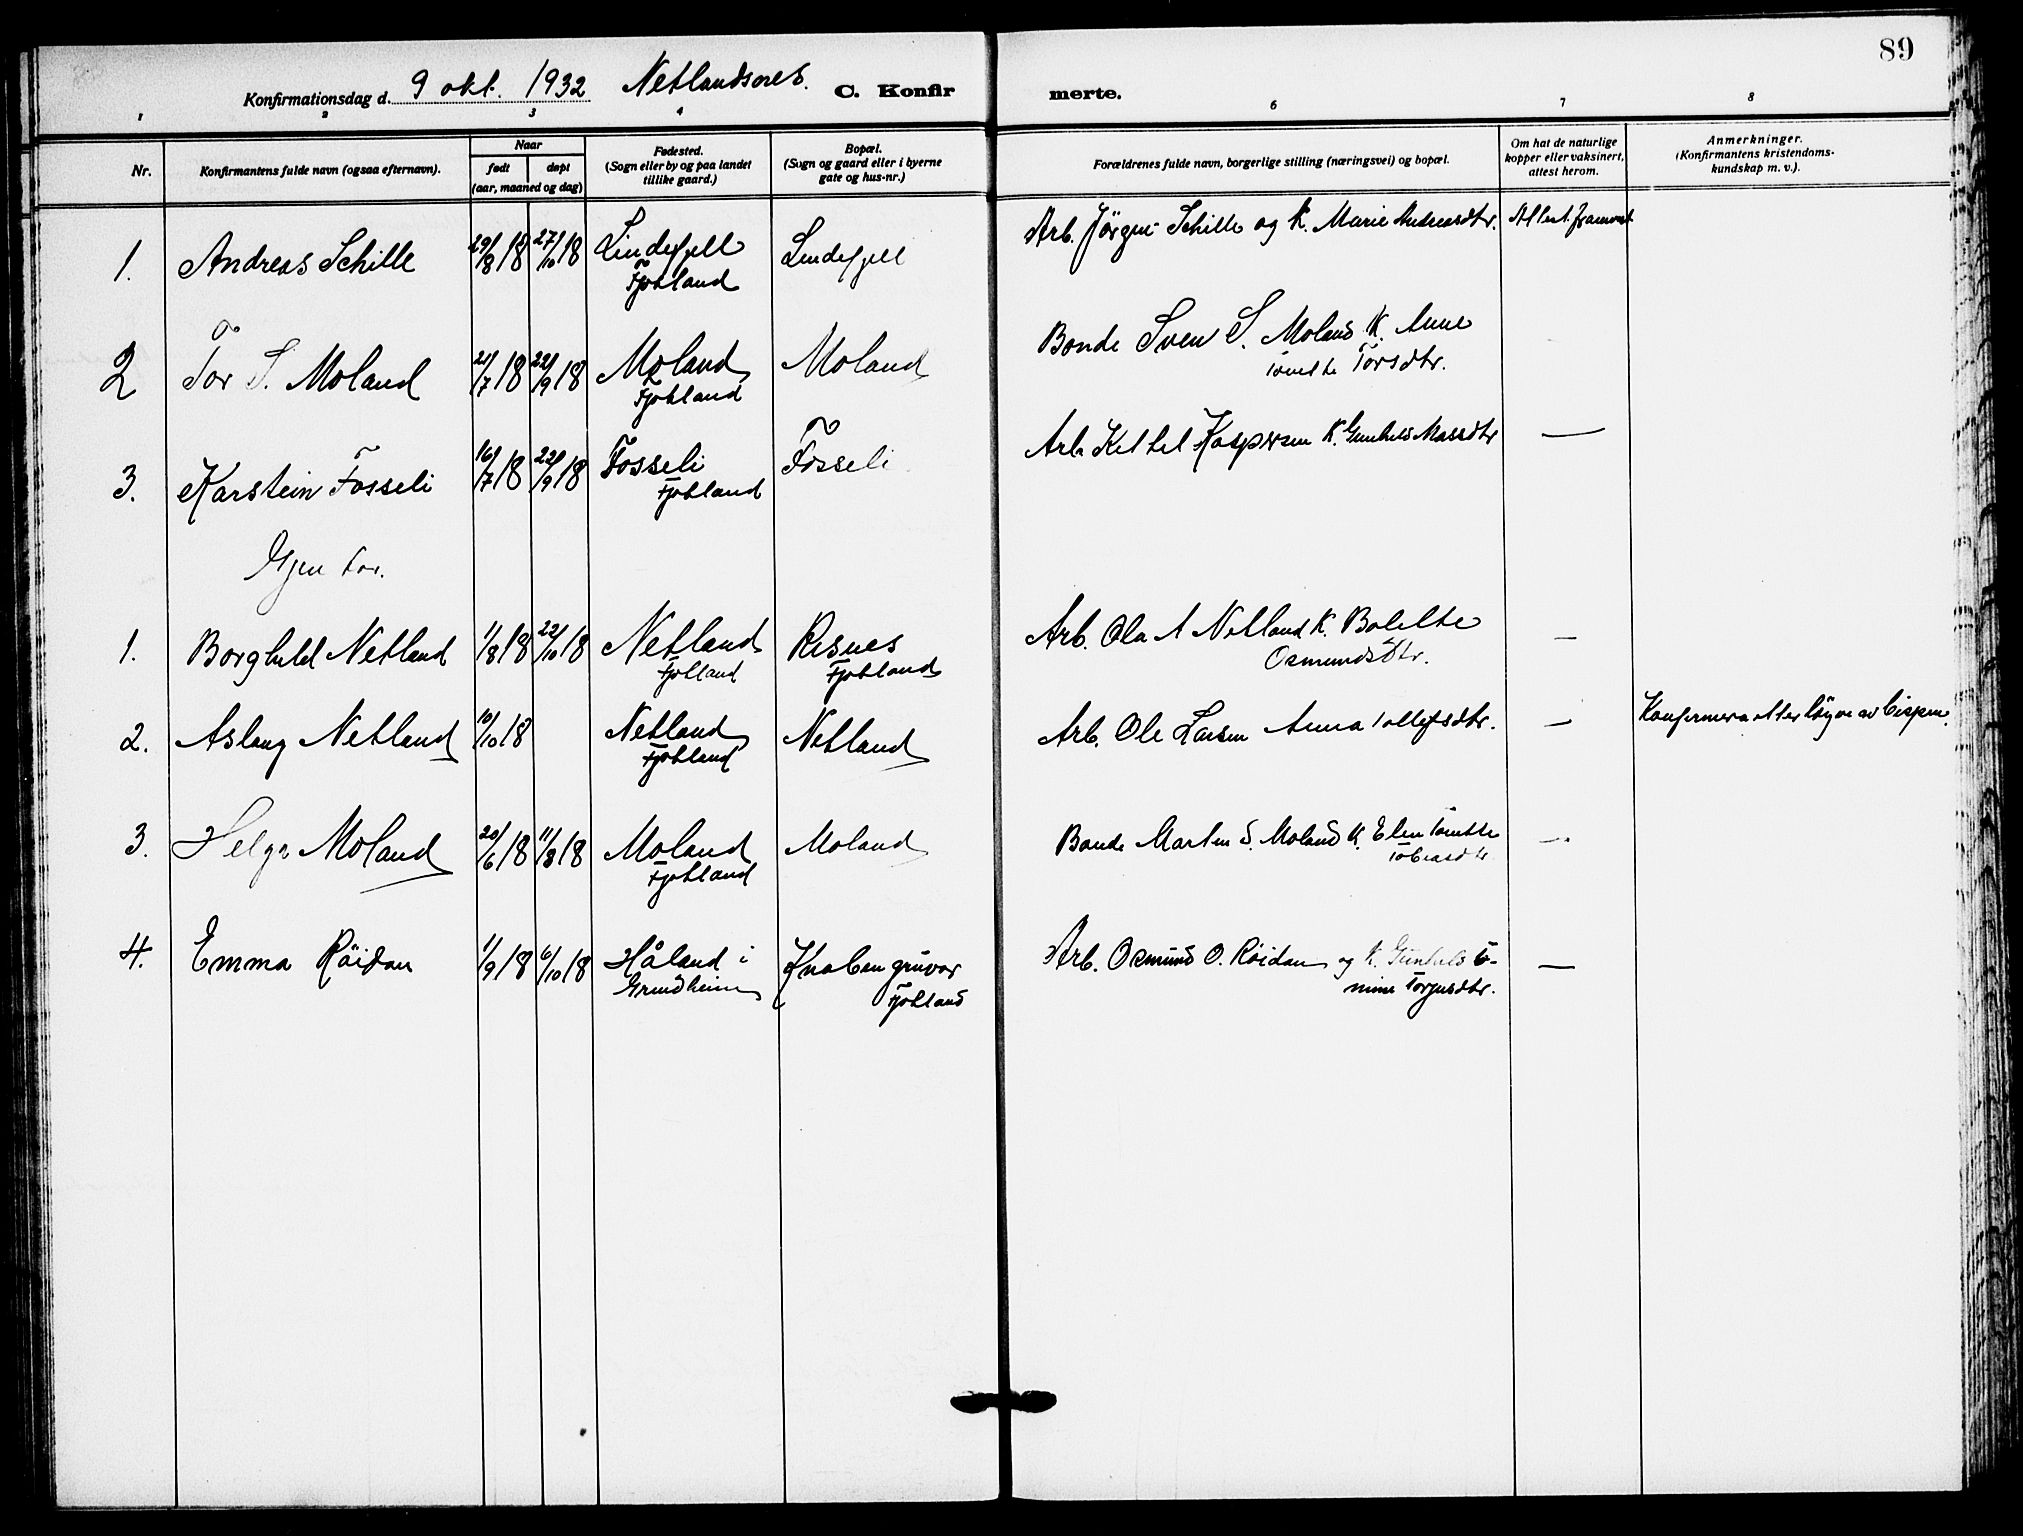 89
Konfirmationsdag d. 9 okt. 1932 C. Konfir merte.
1 2 3 4 6 7 8
Nr.
Konfirmantens fulde navn (ogsaa efternavn).
Naar
født døpt
(aar, maaned og dag)
Fødested.
(Sogn eller by og paa landet
tillike gaard.)
Bopæl.
(Sogn og gaard eller i byerne
gate og hus-nr.)
Forældrenes fulde navn, borgerlige stilling (næringsvei) og bopæl.
Om hat de naturlige
kopper eller vaksinert,
attest herom.
Anmerkninger.
(Konfirmantens kristendoms-
kundskap m. v.).
1. Andreas Schille 29/8 18 27/10 18 Lindefjell Lindefjell Arb. Jörgen Schille og K. Marie Andreasdtr.
Fjotland
2 Tor S. Moland 21/7 18 22/9 18 Moland Moland Bonde Sven S. Moland K. Anne
Fjotland Torsdtr.
3. Karstein Fosseli 16/7 18 22/9 18 Fosseli Fosseli Arb. Kettel Kaspersen K. —
Fjotland
Gjentor.
1. Borghild Netland 1/8 18 22/10 18 Netland Risnes Arb. Ola A Netland K. Bolette —
Fjotland Fjotland Osmundsdtr.
2. Aslaug Netland 10/10 18 Netland Netland Arb. Ole Larsen Anna Tollefsdtr. —
Fjotland
3. Helga Moland 20/6 18 11/8 18 Moland Moland Bonde Marten S. Moland K. Elen —
Fjotland Tobiasdtr.
4. Emma Röidan 1/9 18 6/10 18 Håland i Knaben gruver Arb. Osmund O. Röidan og K. —
Grindheim Fjotland Torjusdtr.